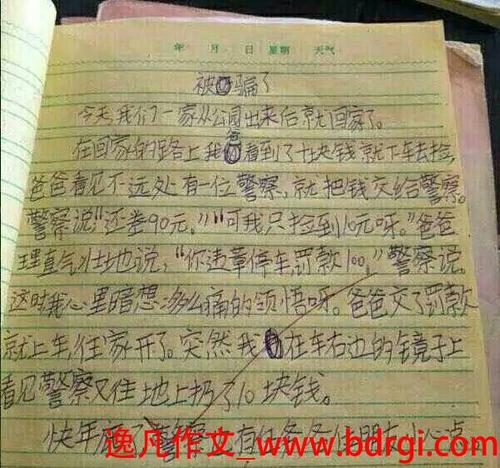 年 月 日 星期 天气
被骗了
今天我们一家从公园出来后就回家了。
在回家的路上我爸看到了十块钱就下车去捡,
爸爸看见不远处有一位警察,就把钱交给警察。
警察说“还差90元。”“可我只捡到10元呀。”爸爸
理直气壮地说,“你违章停车罚款100,”警察说。
这时我心里暗想:多么痛的领悟呀。爸爸交了罚款
就上车往家开了。突然我在车右边的镜子上
看见警察又往地上扔了10块钱。
快年
逸凡作文_www.bdrgi.com